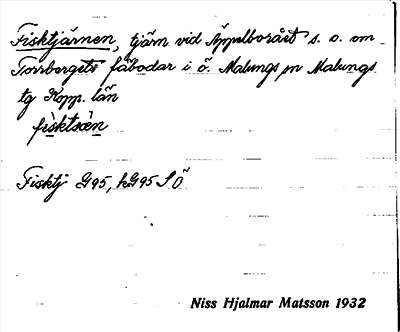 Fisktjärnen, tjärn vid Äppelborået s. o. om
Torrbergets fäbodar i ö. Malungs sn Malungs
tg Kopp. län
fisktsæn
Fisktj G95, hG95 SÖ
Niss Hjalmar Matsson 1932